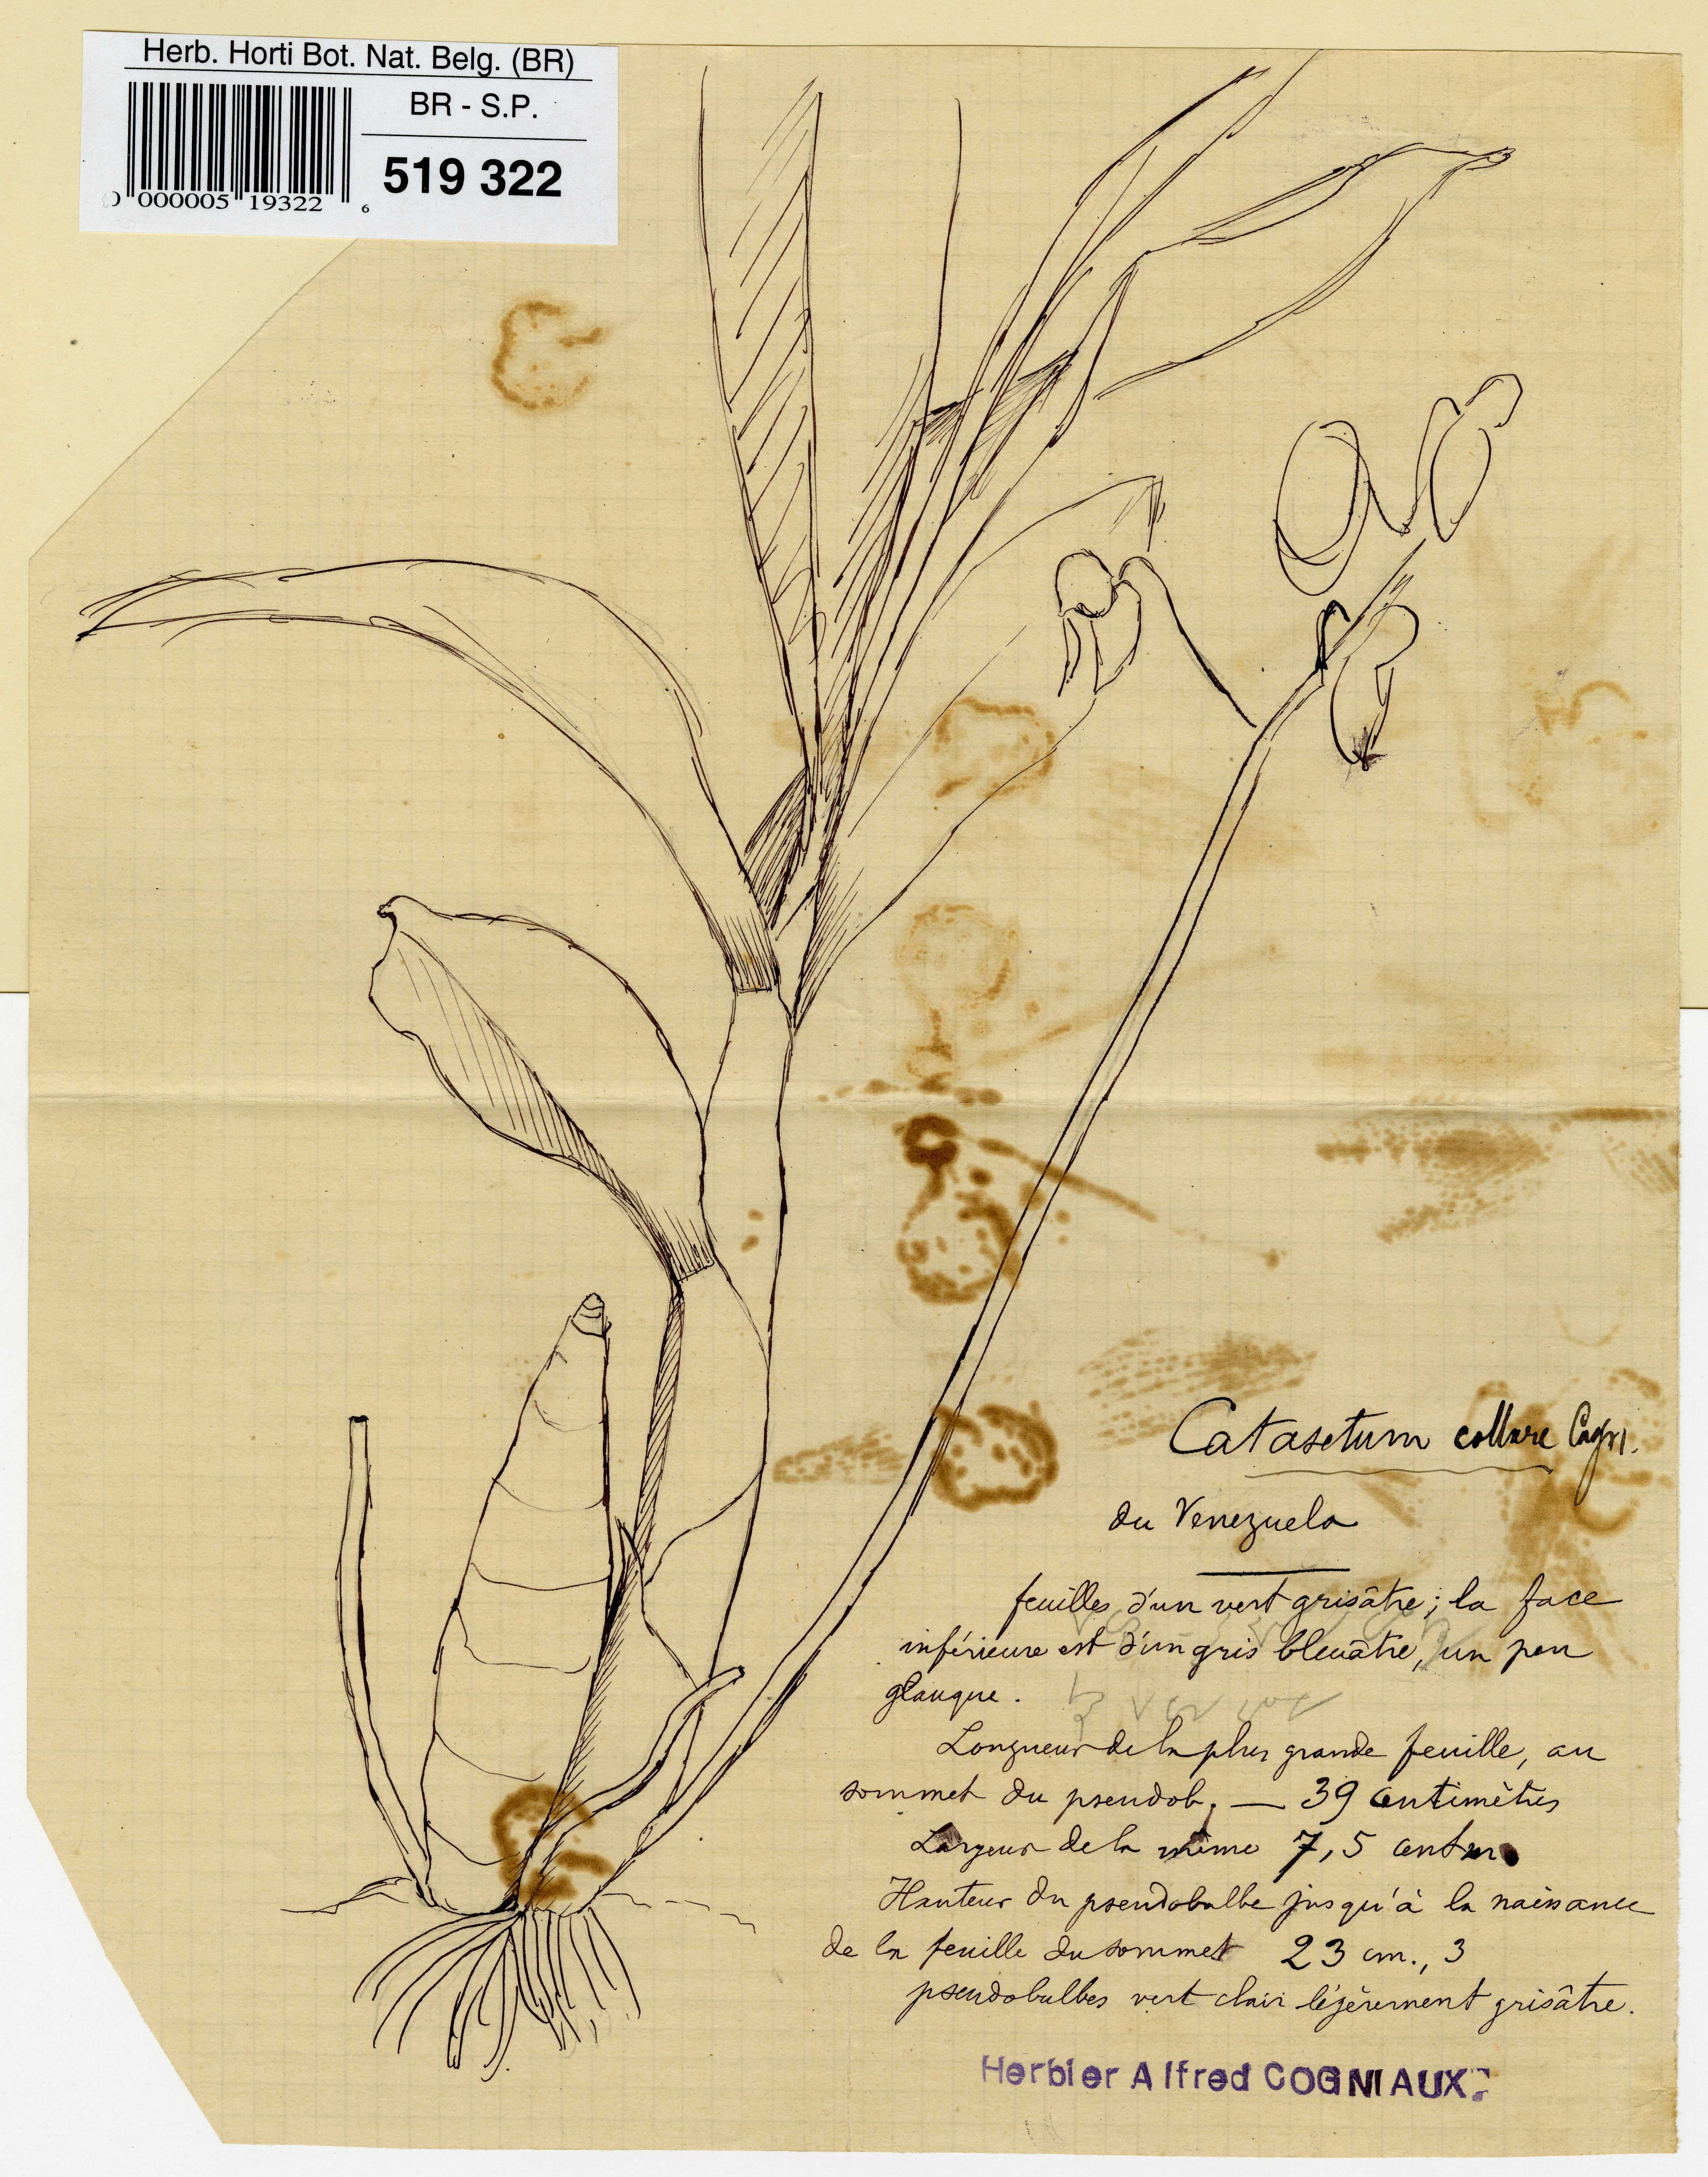 Herb. Horti Bot. Nat. Belg. (BR)
BR - S.P.
0 000005 19322 6
519 322
Catasetum collare Cogn.
du Venezuela
feuilles d'un vert grisâtre; la face
inférieure est d'un gris bleuâtre, un peu
glauque.
Longueur de la plus grande feuille, au
sommet du pseudob. — 39 centimètres
Largeur de la même 7,5 centm
Hauteur du pseudobulbe jusqu'à la naissance
de la feuille du sommet 23 cm., 3
pseudobulbes vert clair légèrement grisâtre.
Herbier Alfred COGNIAUX